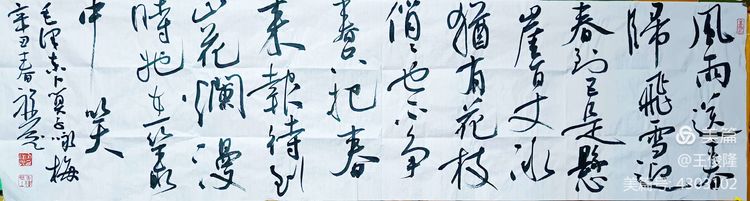 風雨送春
歸飛雪迎
春到已是懸
崖百丈冰
猶有花枝
俏俏也不爭
春只把春
来報待到
山花爛漫
時她在叢
中笑
毛澤東卜算子咏梅
辛丑春
美篇
@王俊隆
美篇号 4302102